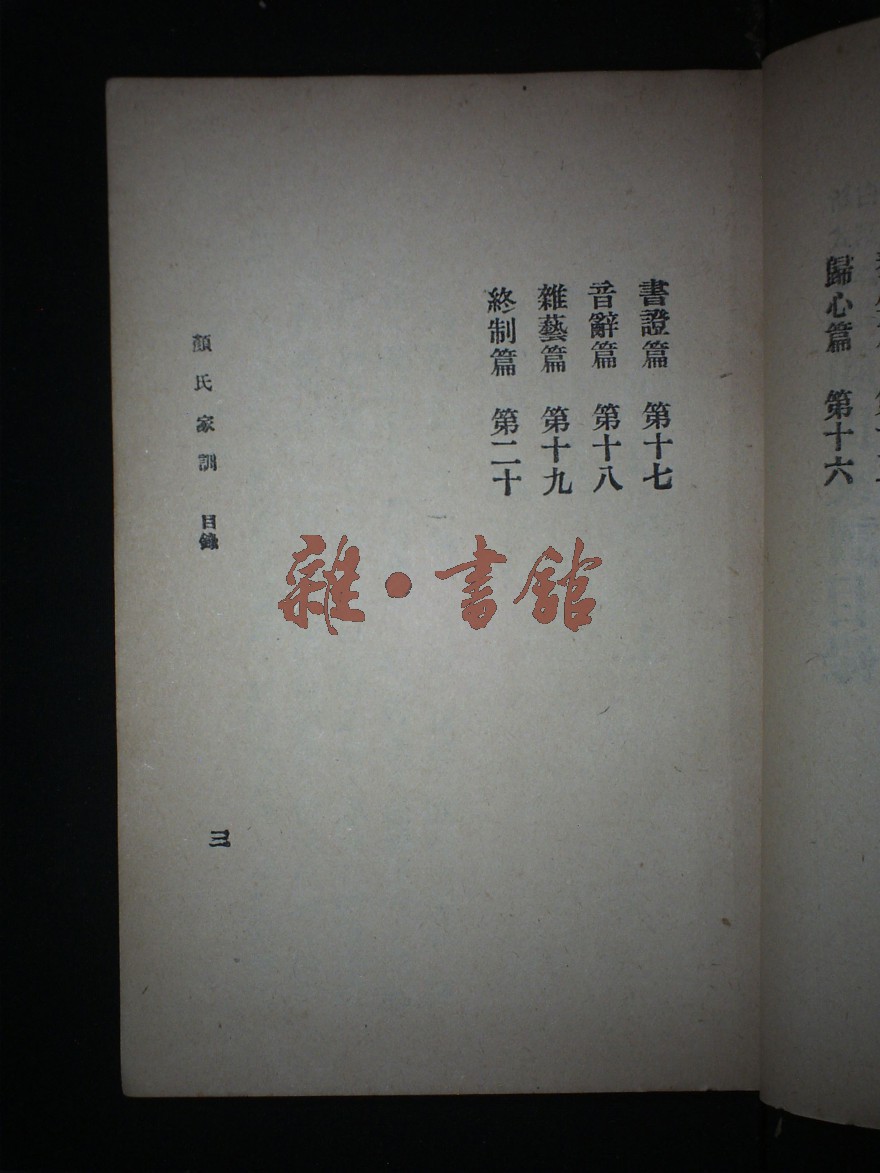 歸心篇　第十六
書證篇　第十七
音辭篇　第十八
雜藝篇　第十九
終制篇　第二十
顏氏家訓　目錄
三
雜·書館